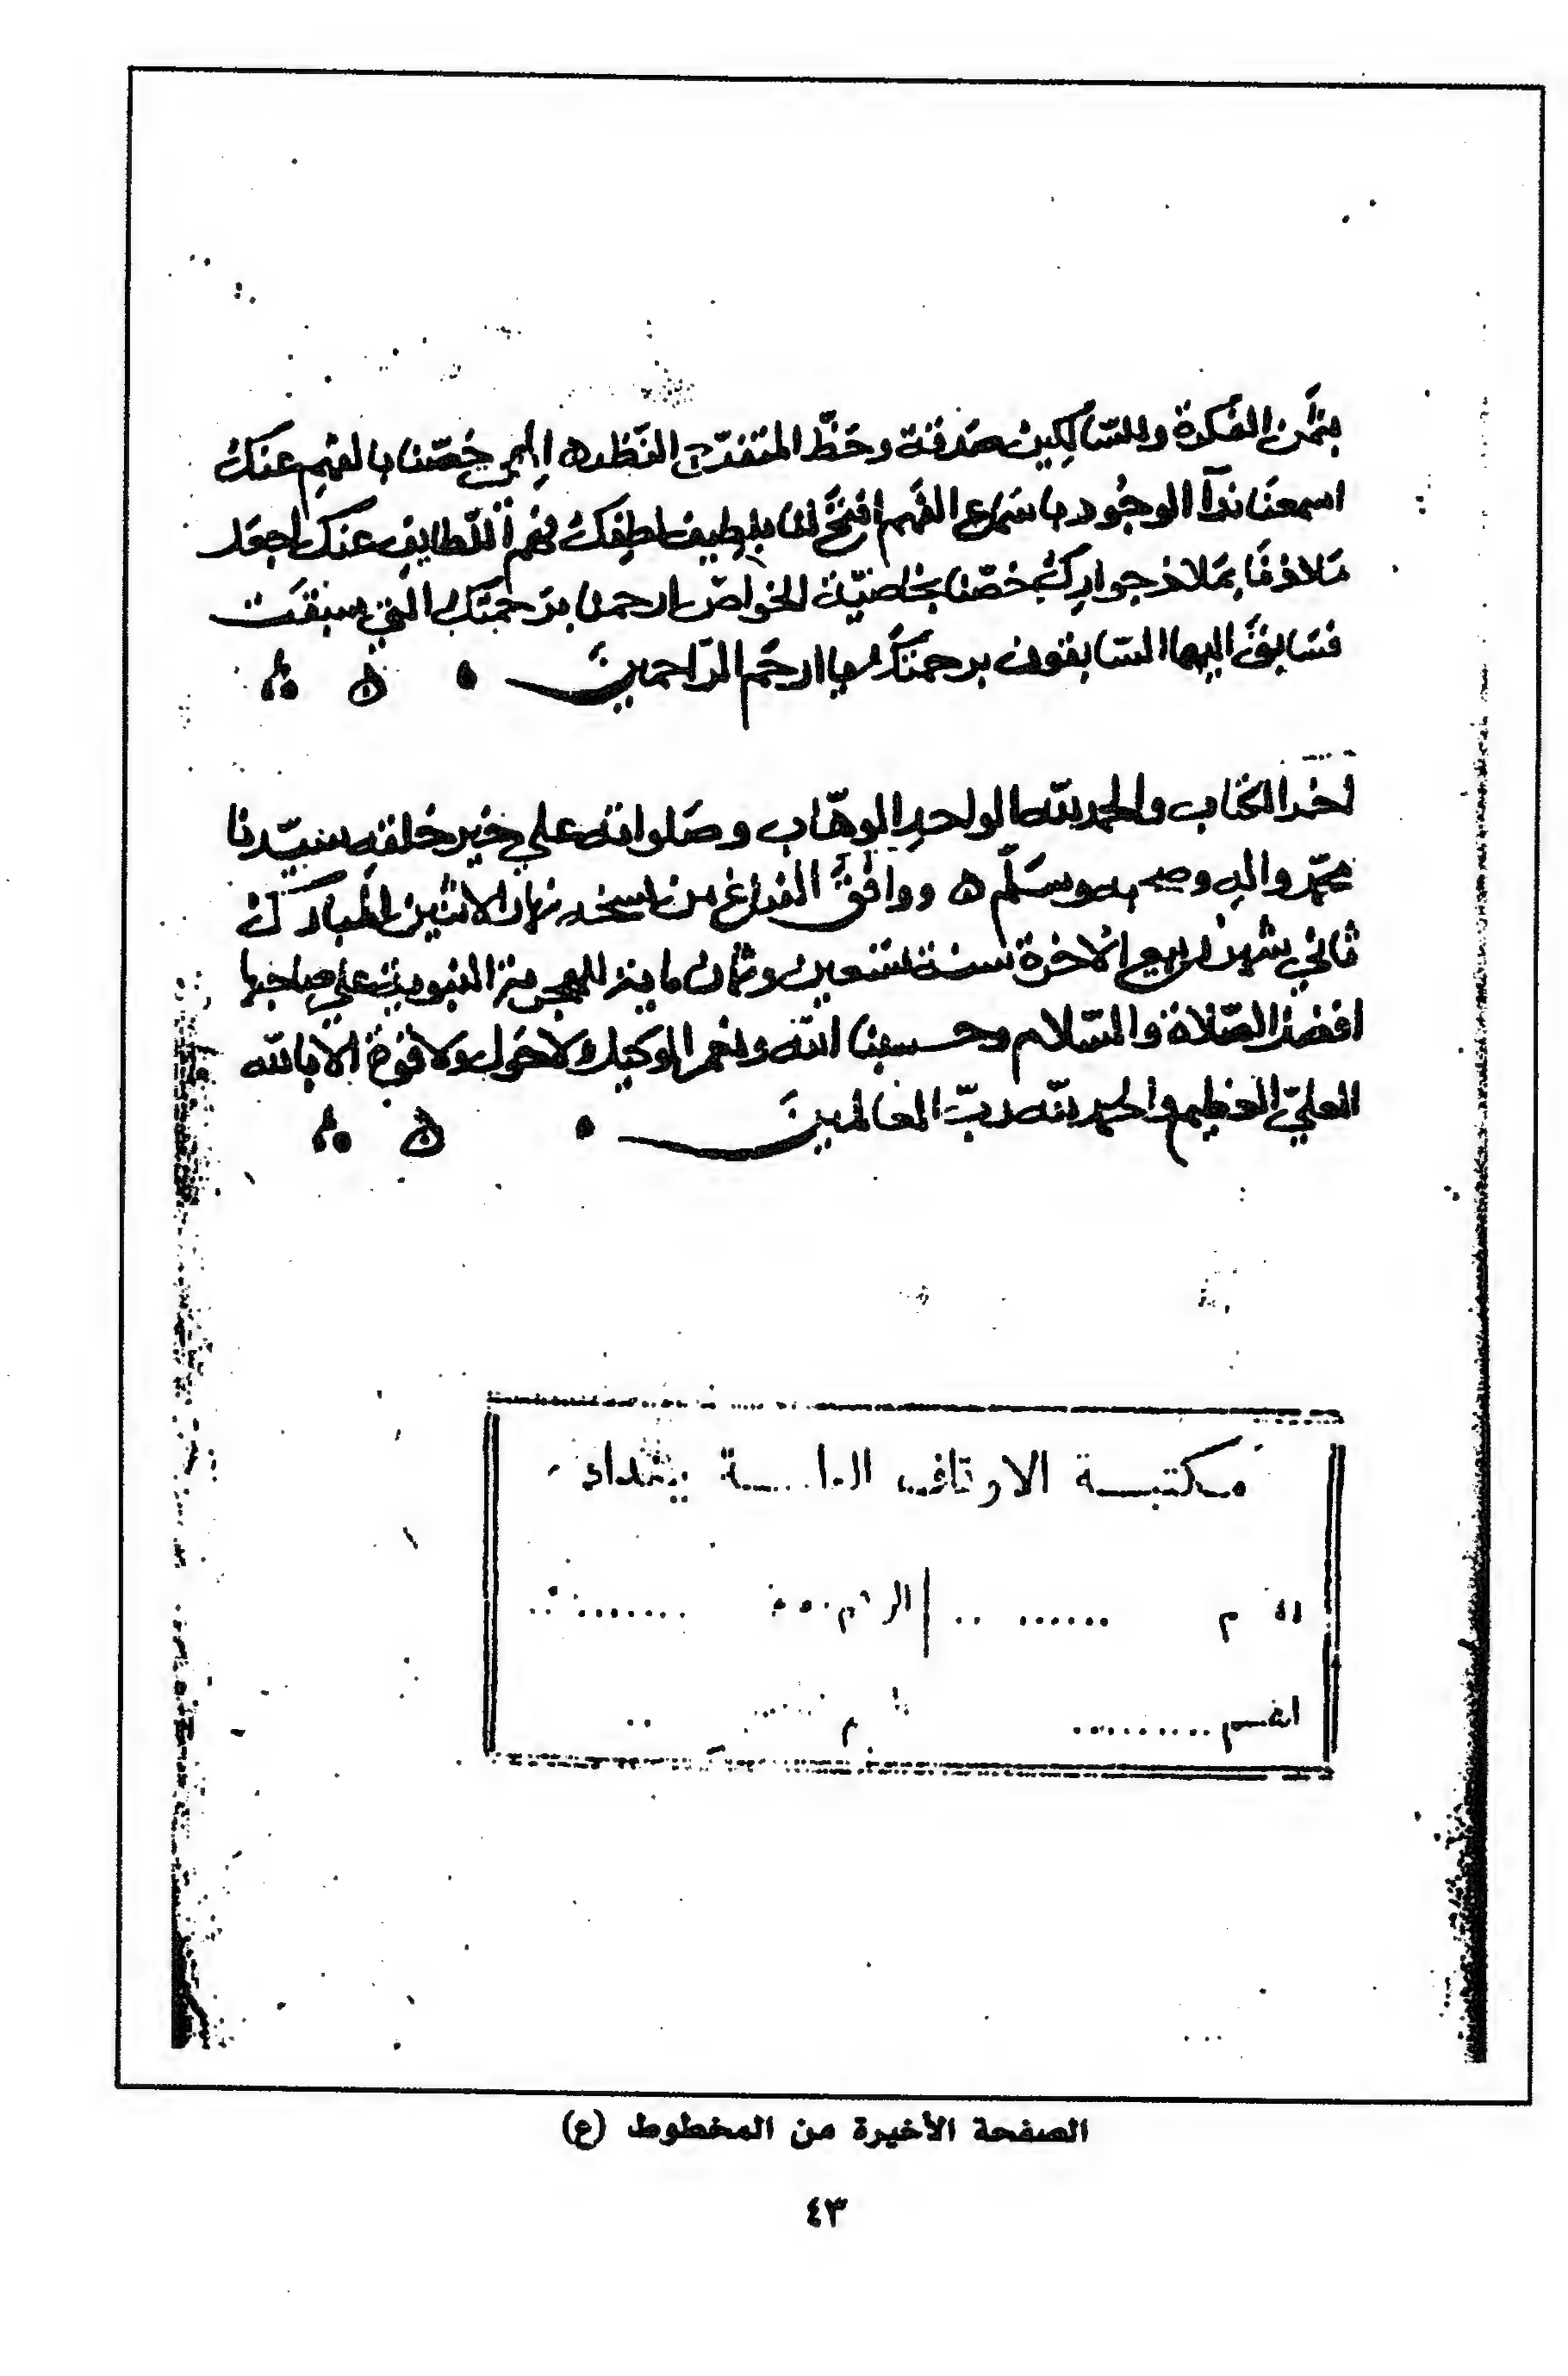 بثمن الفكرة وللسّالكين صدقة وحظّ المتفرّج النّظره الهي خصّنا بالفهم عنك
اسمعنا ندآ الوجود باسماع الفهم افتح لنا بلطيف لطفك فهم اللّطايف عنك اجعل
ملاذنا بملاذ جوارك خصّنا بخاصيّة الخواصّ ارحمنا برحمتك التي سبقت
فسابق اليها السّابقون برحمتك يا ارحم الرّاحمين
اخر الكتاب والحمد لله الواحد الوهّاب وصلواته علي خير خلقه سيّدنا
محمّد واله وصحبه وسلّم ووافق الفراغ من نسخه نهار الاثنين المبارك
ثاني شهر ربيع الاخرة سنة تسعين وثمان ماية للهجرة النبوية علي صاحبها
افضل الصّلاة والسّلام وحسبنا الله ونعم الوكيل ولا حول ولا قوة الا بالله
العليّ العظيم والحمد لله ربّ العالمين
مكتبة الاوقاف العامة ببغداد
الرقم
القسم
الصفحة الأخيرة من المخطوط (ع)
٤٣